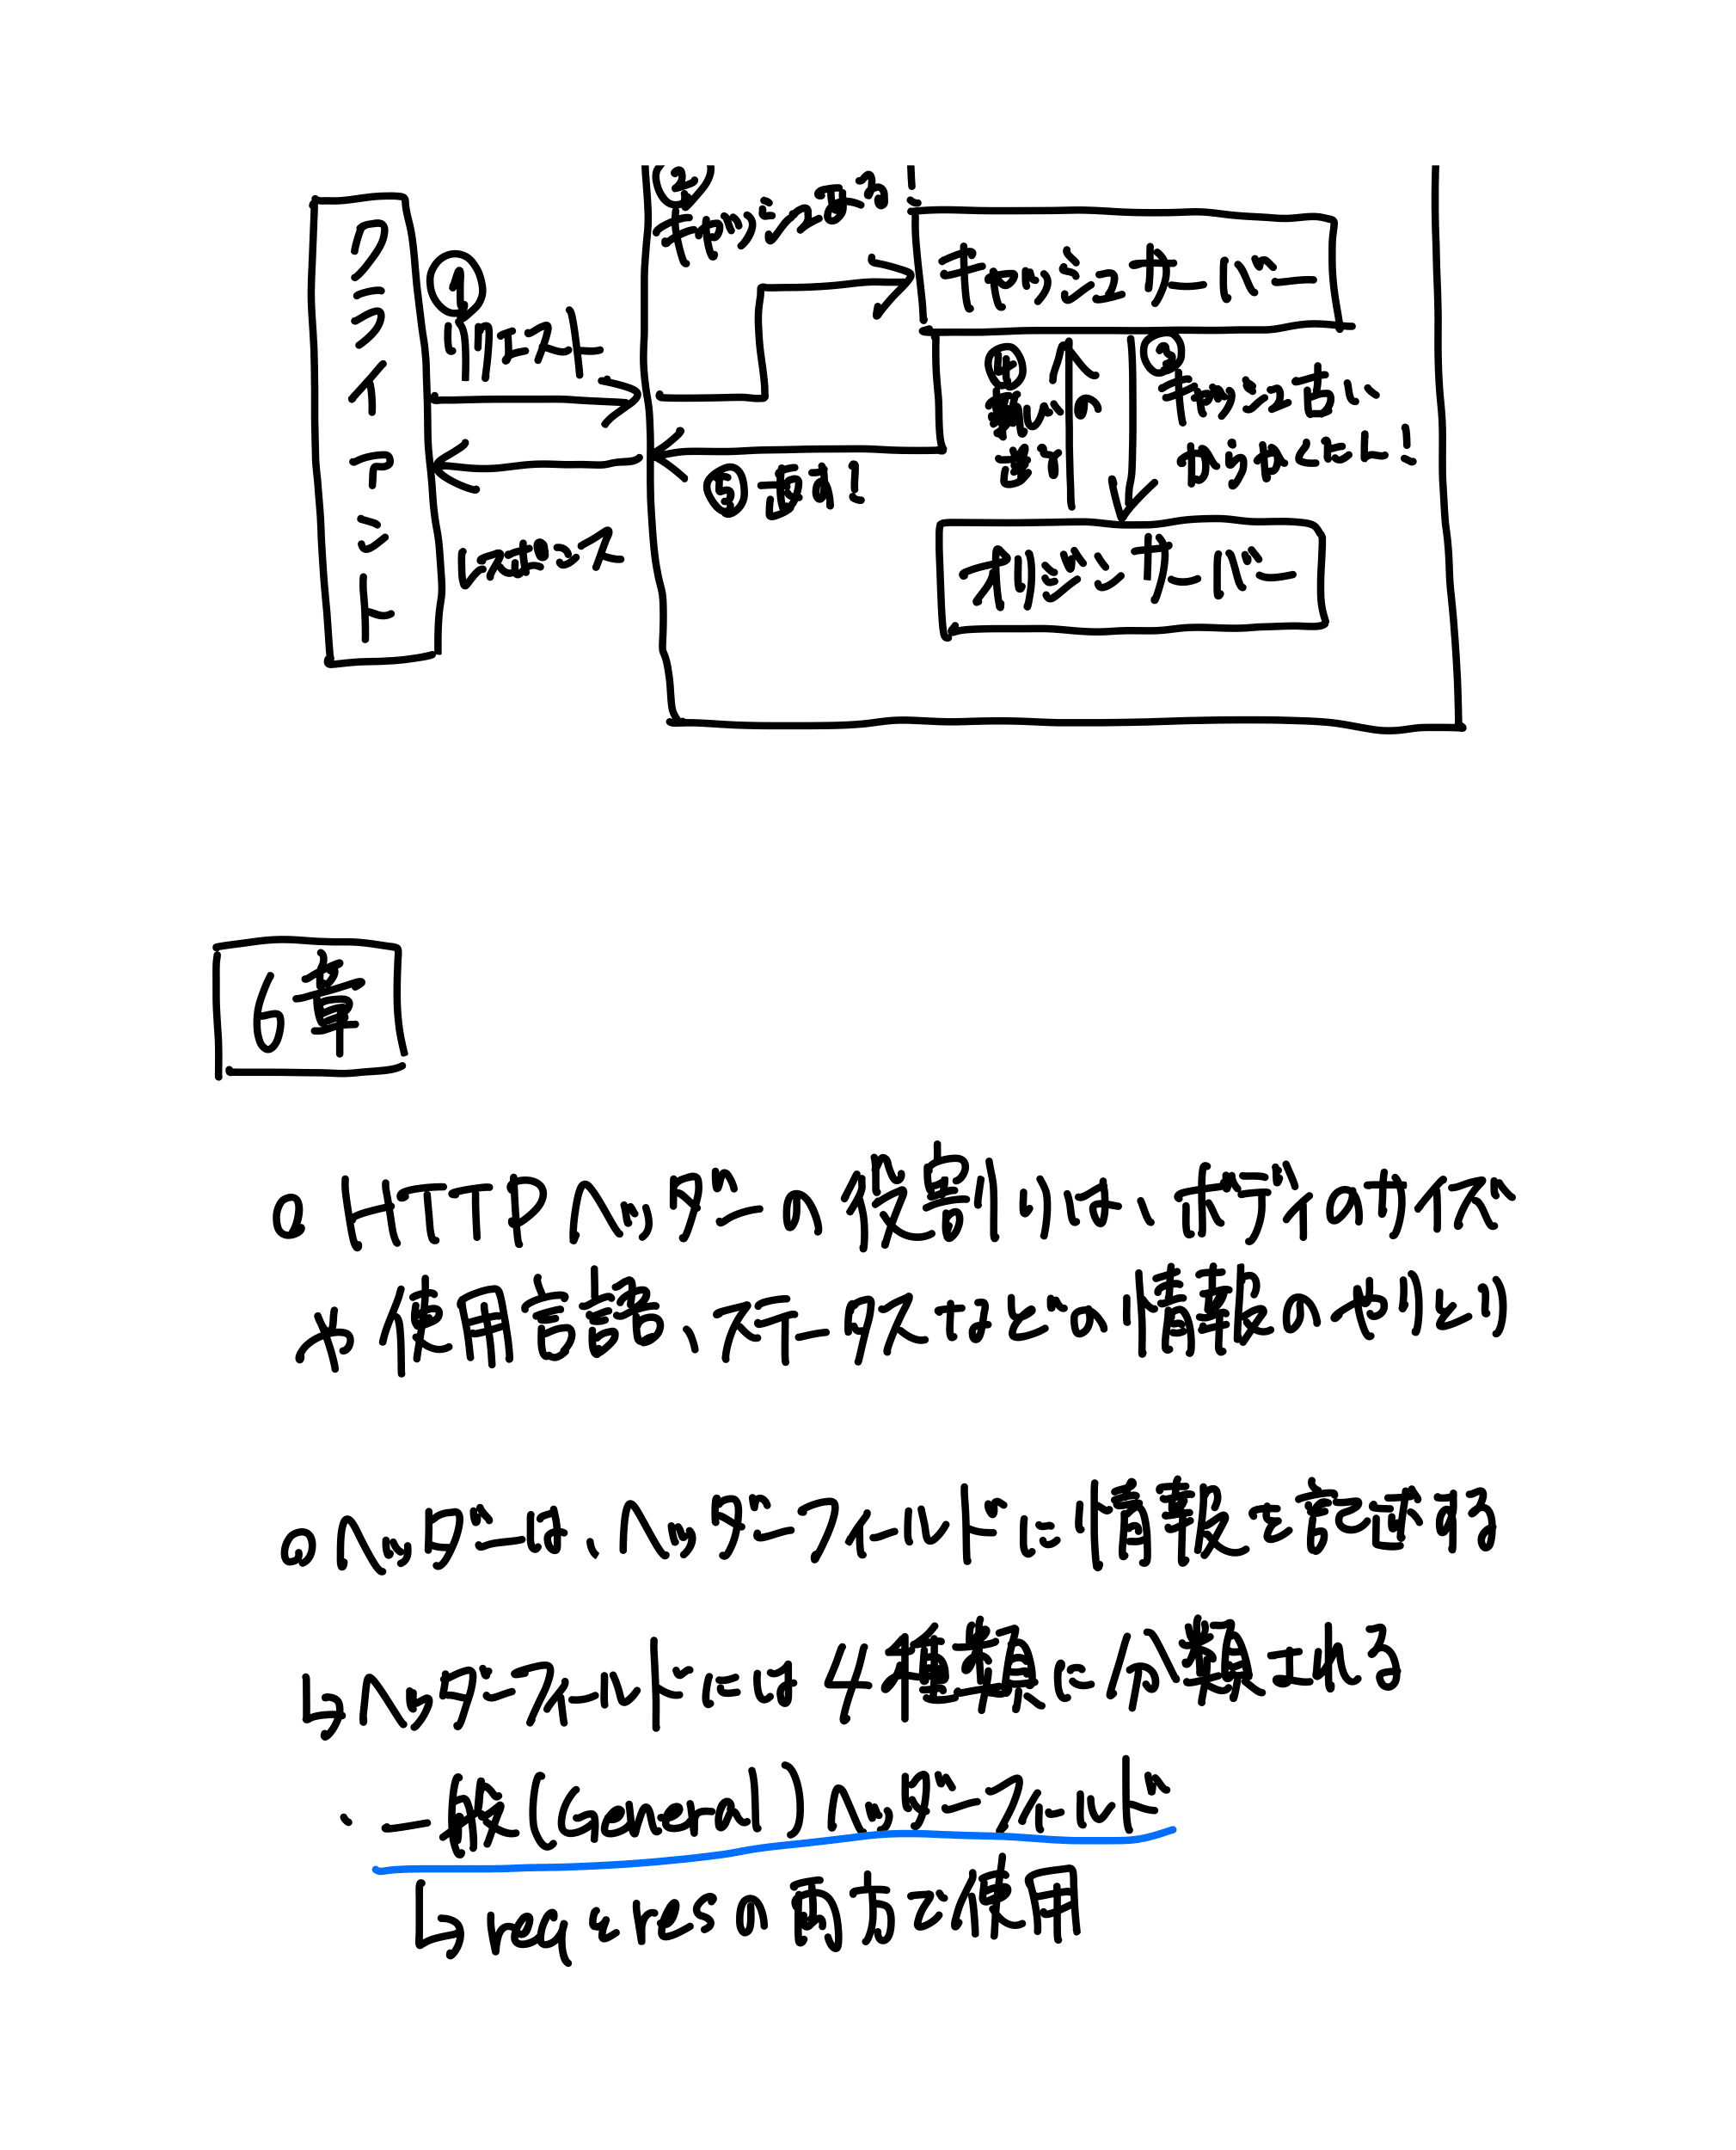 クライアント
①
リクエスト
レスポンス
②
キャッシュある?
キャッシュサーバー
④
無いよ
③
キャッシュ古いかも
⑤
オリジンサーバー
6章
○ HTTPヘッダーの役割りは、ボディのサイズ
や使用言語、ステータスなどの情報のやりとり
○ヘッダーは、ヘッダーフィールドに情報を記述する
↳ヘッダーフィールドには4種類に分類される
・一般(General)ヘッダーフィールド
↳req,resの両方で使用